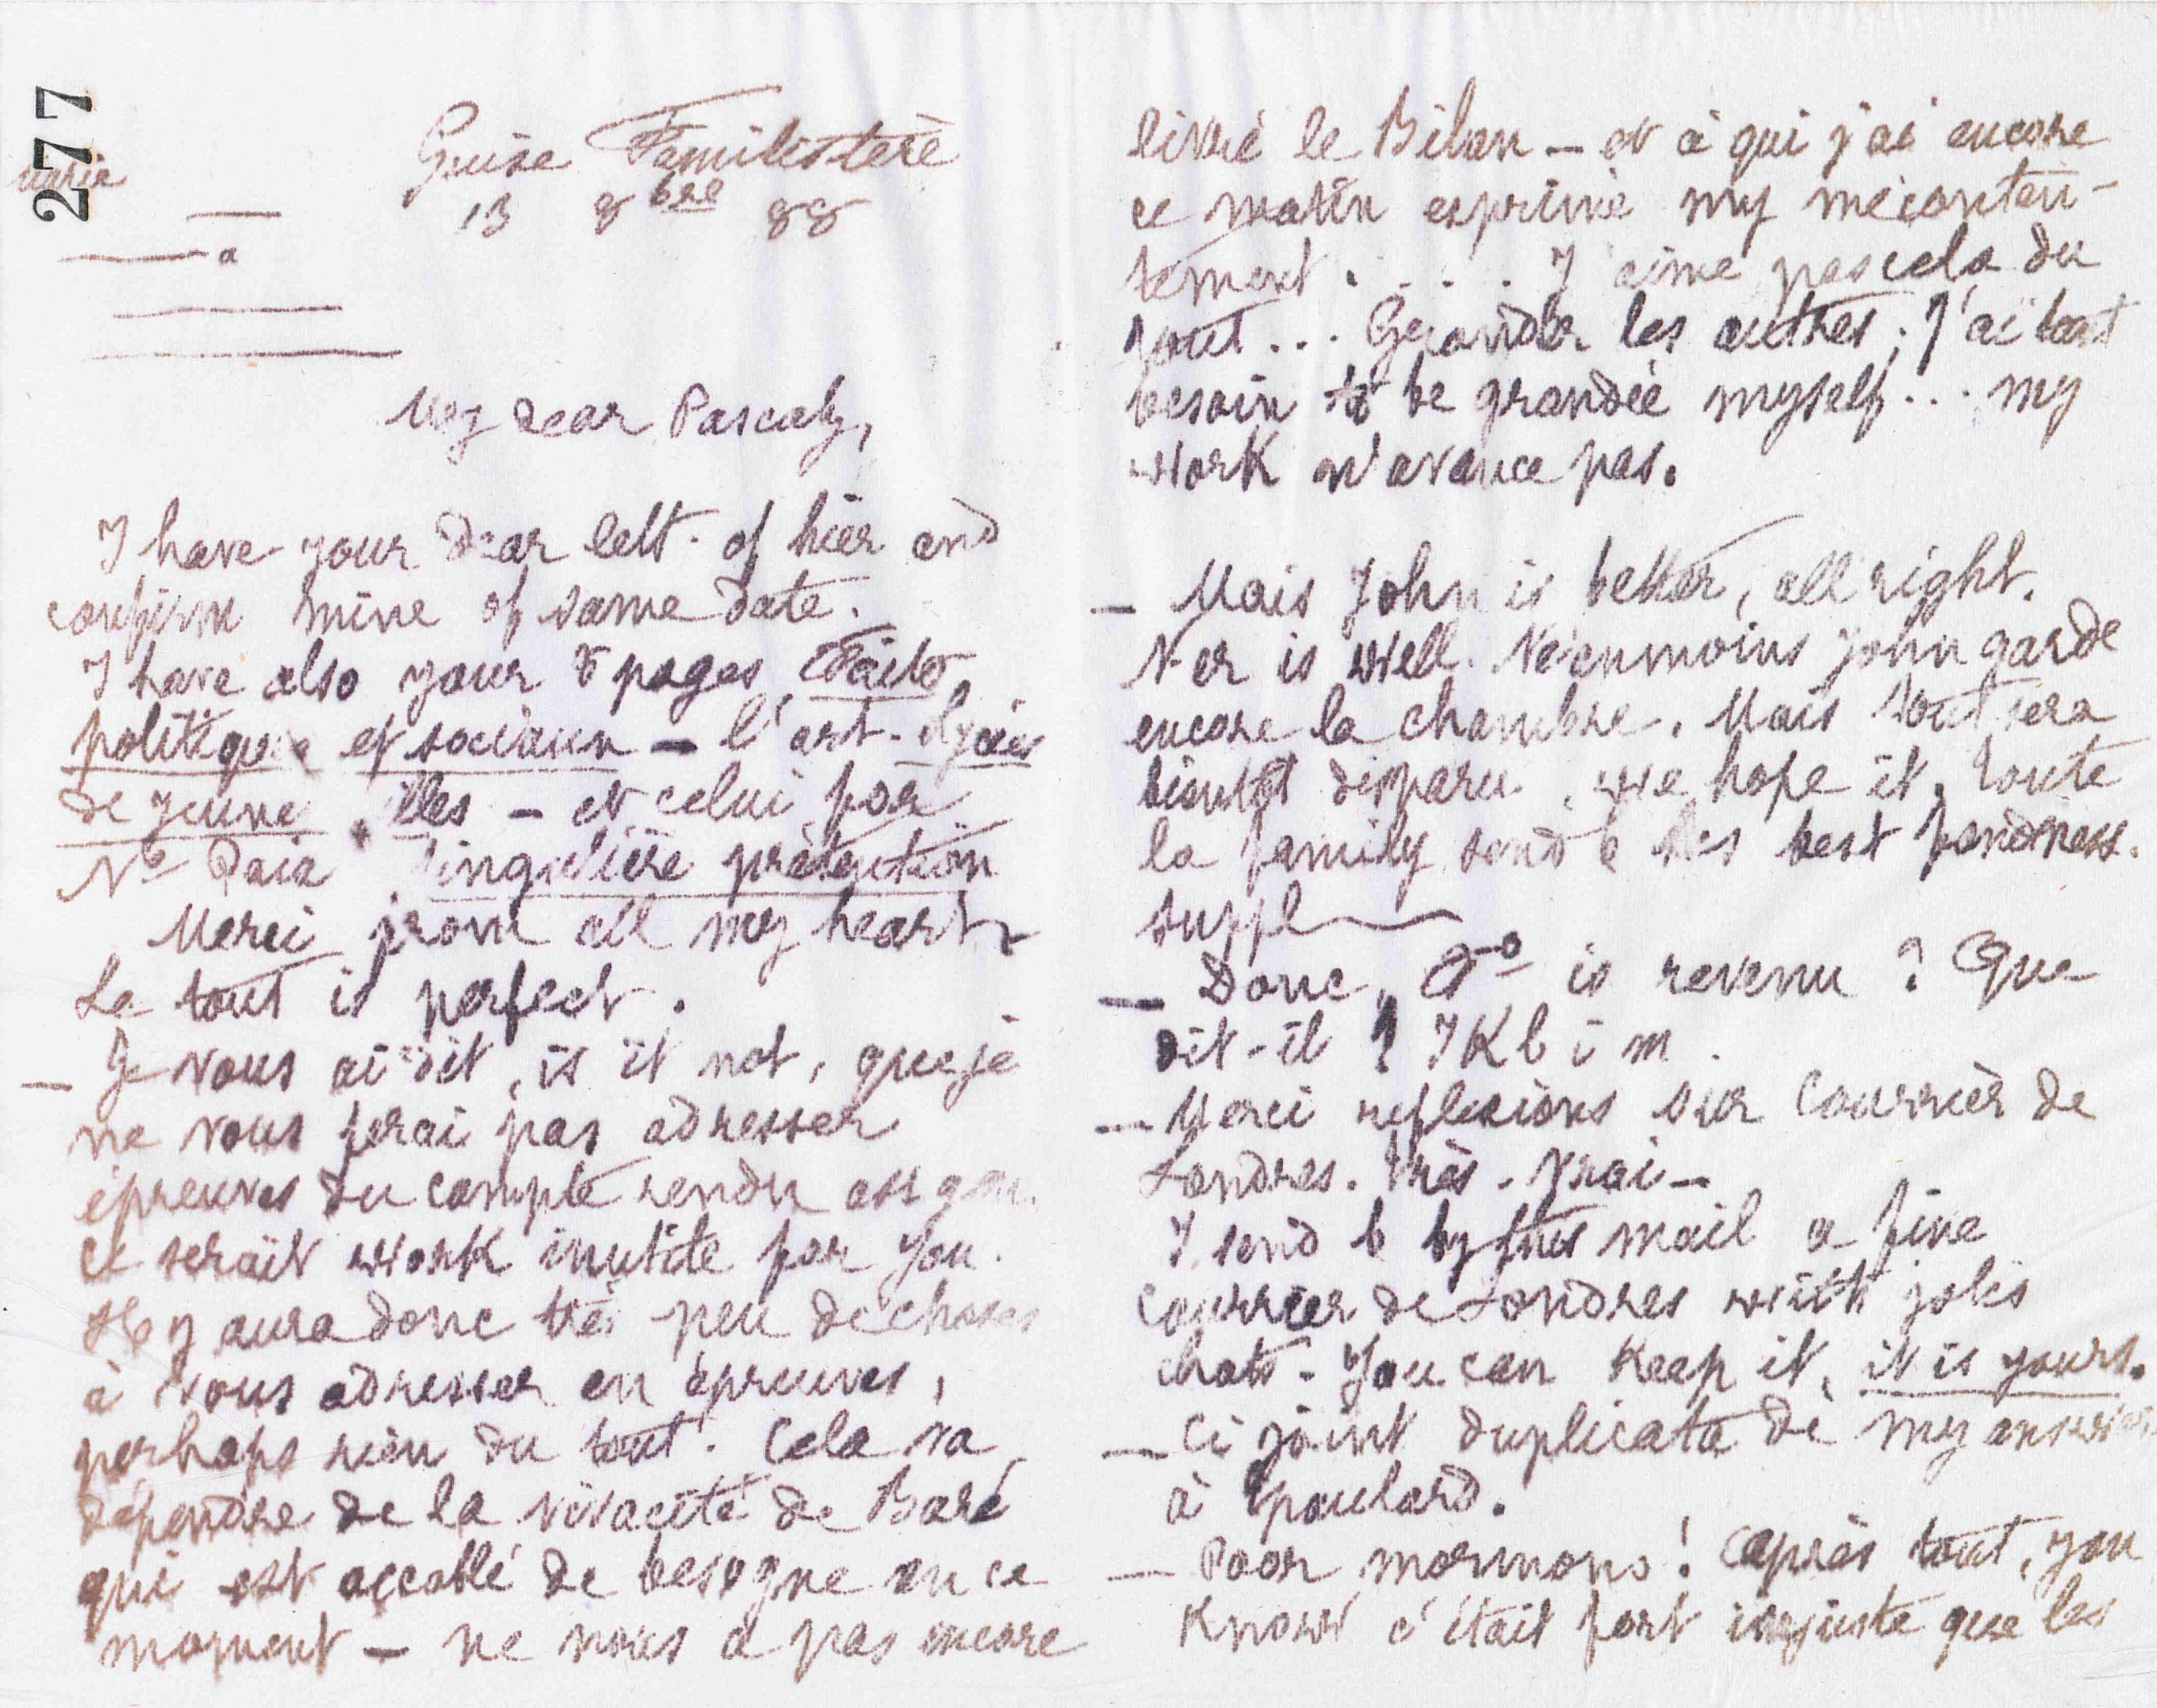 277
Guise Familistère
13 8bre 88
a
My dear Pascaly,
I have your dear lett. of hier and
confirm mine of same date.
I have also your 8 pages, Faits
politiques et sociaux — l'art. Lycées
de jeunes filles — et celui pour
No Paix singulière prétention
Merci from all my heart
Le tout is perfect.
— Je vous ai dit, is it not, que je
ne vous ferai pas adresser
épreuves du compte rendu ass gén.
ce serait work inutile for you.
Il y aura donc très peu de choses
à vous adresser en épreuves,
perhaps rien du tout. Cela va
dépendre de la vivacité de Baré
qui est accablé de besogne en ce
moment — ne nous a pas encore
livré le Bilan — et à qui j'ai encore
ce matin exprimé my méconten-
tement. . . . J'aime pas cela du
tout... Gronder les autres; J'ai tant
besoin to be grondée myself... my
work n'avance pas.
— Mais John is better, all right.
Ner is well. Néanmoins John garde
encore la chambre. Mais tout sera
bientôt disparu, we hope it, toute
la family send b his best fondness.
suppl
— Donc, Jo is revenu ? Que
dit-il ? J K b i m.
— Merci réflexions sur Courrier de
Londres. Très-vrai —
I send b by this mail a fine
Courrier de Londres with jolis
chats. You can keep it, it is yours.
— Ci joint duplicata de my answer
à Poulard.
— Poor mormons ! après tout, you
know c'était fort injuste que les